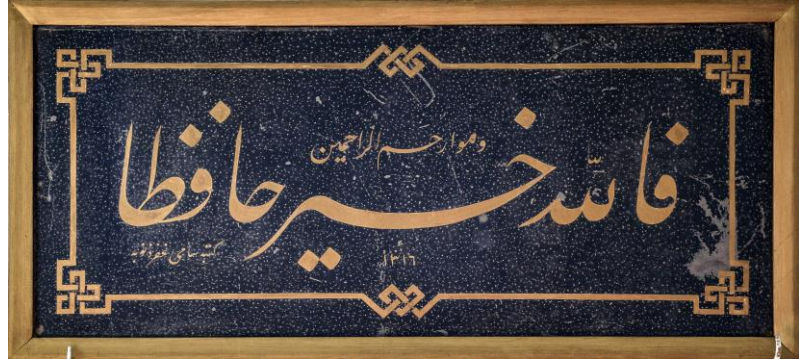 فالله خير حافظا
وهو ارحم الراحمين
كتبه سامى غفر ذنوبه
١٣١٦